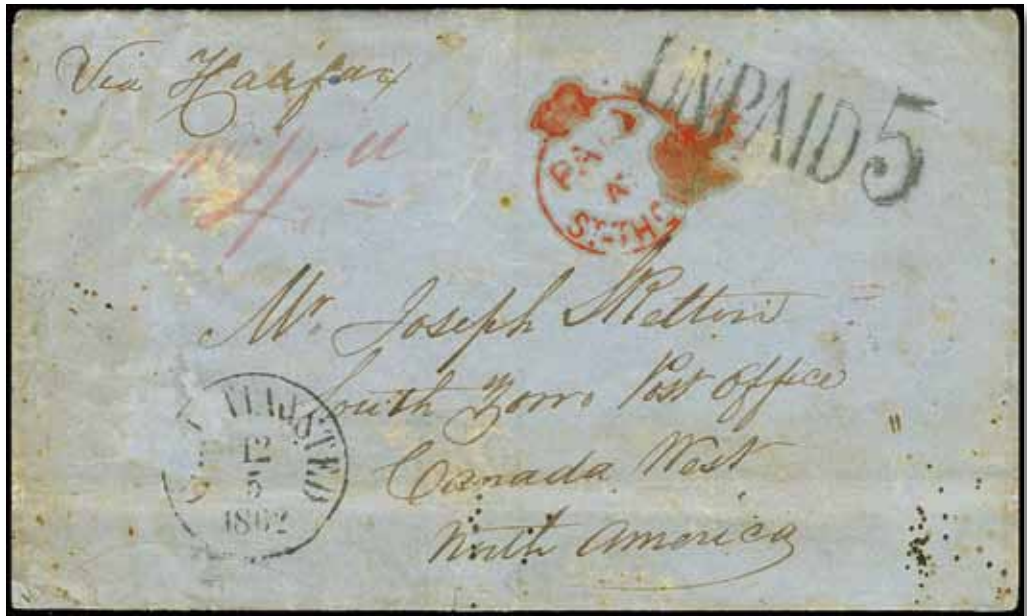 Via Halifax
UNPAID 5
PAID
ST-TH
Mr. Joseph Skelton
South Zorra Post Office
Canada West
North America
12
5
1862